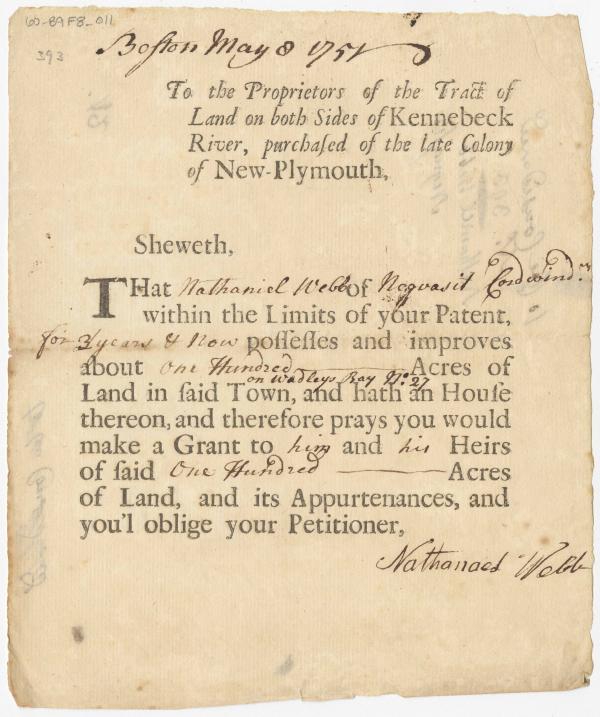 60-89F8-011
393
Boſton May 8 1751
To the Proprietors of the Tract of
Land on both Sides of Kennebeck
River, purchaſed of the late Colony
of New-Plymouth,
Sheweth,
THat Nathaniel Webb of Neqvasit Cordwindr.
within the Limits of your Patent,
for 3 years & Now poſſeſſes and improves
about One Hundred Acres of
on Wadleys Bay No. 27
Land in ſaid Town, and hath an Houſe
thereon, and therefore prays you would
make a Grant to him and his Heirs
of ſaid One Hundred Acres
of Land, and its Appurtenances, and
you'l oblige your Petitioner,
Nathanael Webb